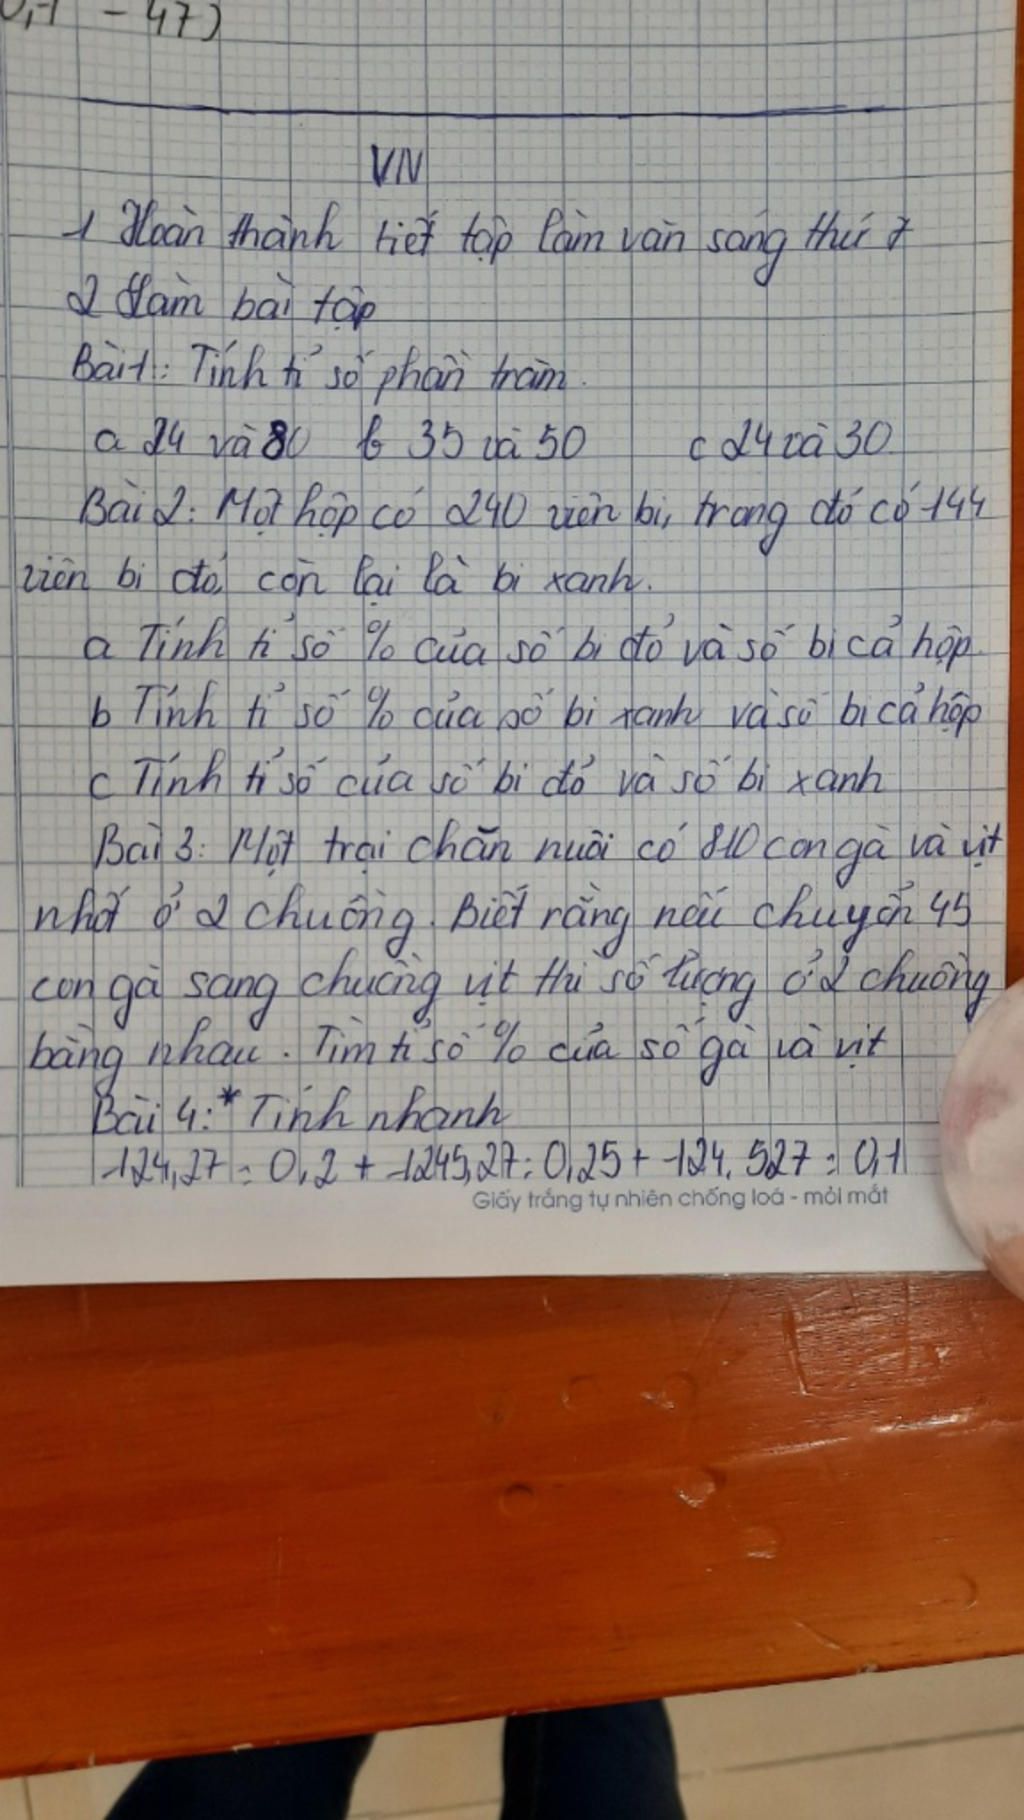 - 47)
VN
1 Hoàn thành tiết tập làm văn sáng thứ 7
2 Làm bài tập
Bài 1: Tính tỉ số phần trăm.
a 24 và 80 b 35 và 50 c 24 và 30
Bài 2: Một hộp có 240 viên bi, trong đó có 144
viên bi đỏ, còn lại là bi xanh.
a Tính tỉ số % của số bi đỏ và số bi cả hộp.
b Tính tỉ số % của số bi xanh và số bi cả hộp
c Tính tỉ số của số bi đỏ và số bi xanh
Bài 3: Một trại chăn nuôi có 810 con gà và vịt
nhốt ở 2 chuồng. Biết rằng nếu chuyển 45
con gà sang chuồng vịt thì số lượng ở 2 chuồng
bằng nhau. Tìm tỉ số % của số gà và vịt
Bài 4: * Tính nhanh
124,27 : 0,2 + 1245,27 : 0,25 + 124.527 : 0,1
Giấy trắng tự nhiên chống loá - mỏi mắt